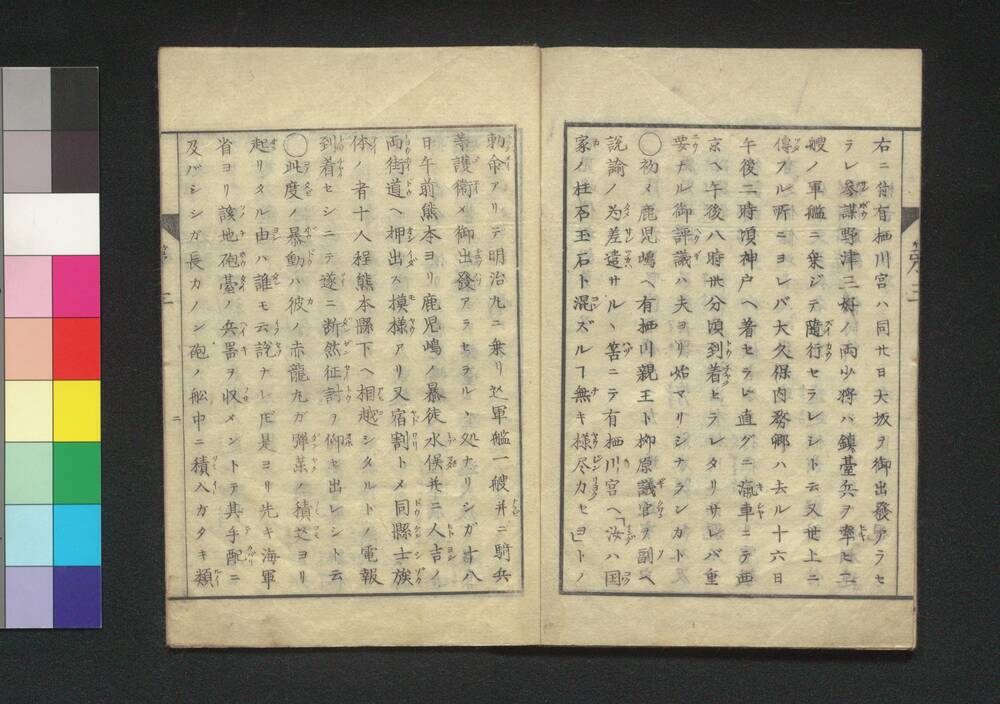 右ニ付有栖川宮ハ同廿日大坂ヲ御出發アラセ
ラレ參謀野津三好ノ両少将ハ鎮臺兵ヲ率ヒ二
艘ノ軍艦ニ乗ジテ隨行セラレシト云又世上ニ
傳フル所ニヨレバ大久保内務卿ハ去ル十六日
午後二時頃神戸ヘ著セラレ直グニ滊車ニテ西
京ヘ午後八時廿分頃到着セラレタリサレバ重
要ナル御評議ハ夫ヨリ始マリシナランカト
○初メ鹿児嶋ヘ有栖川親王ト柳原議官ヲ副ヘ
説諭ノ為差遣サルヽ筈ニテ有栖川宮ヘ「汝ハ国
家ノ柱石玉石ト混ズルヿ無キ様尽力セヨ」トノ
勅命アリテ明治丸ニ乗リ込軍艦一艘并ニ騎兵
等護衛メ御出發アラセラルヽ処ナリシガ十八
日午前熊本ヨリ鹿児嶋ノ暴徒水俣并ニ人吉ノ
両街道ヘ押出ス模様アリ又宿割トメ同縣士族
体ノ者十人程熊本縣下ヘ相越シタルトノ電報
到着セシニテ遂ニ断然征討ヲ仰セ出レシト云
○此度ノ暴動ハ彼ノ赤龍丸ガ弾薬ノ積込ヨリ
起リタル由ハ誰モ云説ナレ𪜈是ヨリ先キ海軍
省ヨリ該地砲臺ノ兵器ヲ収メントテ其手配ニ
及バシシガ長カノン砲ノ船中ニ積入ガタキ類
第三
二